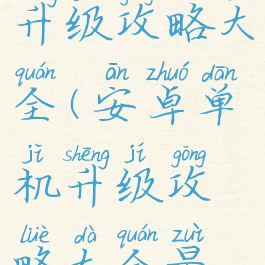 升级攻略大
quán ān zhuó dān
全(安卓单
jī shēng jí gōng
机升级攻
lüè dà quán zuì
略大全最